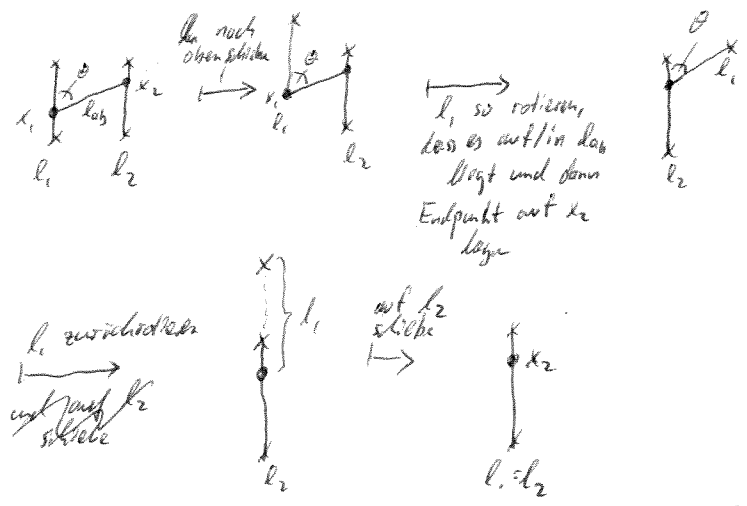 θ
x₁
x₂
l_ab
l₁
l₂
nach
oben schiebe
θ
x₁
l₁
l₂
l₁ so rotieren,
dass es auf/in l_ab
liegt und dann
Endpunkt auf x₂
legen
θ
l₁
l₂
l₁ zurückrotieren
und auf l₂
schiebe
l₁
l₂
auf l₂
schiebe
x₂
l₁ = l₂